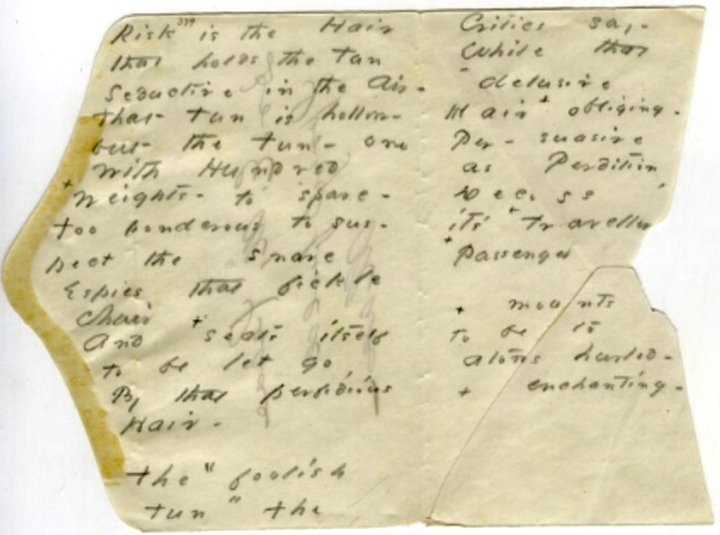 Risk 339 is the Hair
that holds the Tun
Seductive in the Air -
That Tun is hollow -
but the Tun - one
With Hundred
+ Weights - to spare -
Too ponderous to sus-
pect the snare
Espies that fickle
Chair +
And seats itself
to be let go
By that perfidious
Hair -
The "foolish
Tun" the
Critics say -
While that
delusive
Hair + obliging -
Per - suasive
as Perdition
Decoys
its + Traveller
+ Passenger
+ mounts
to be it
atoms hurled -
+ enchanting -